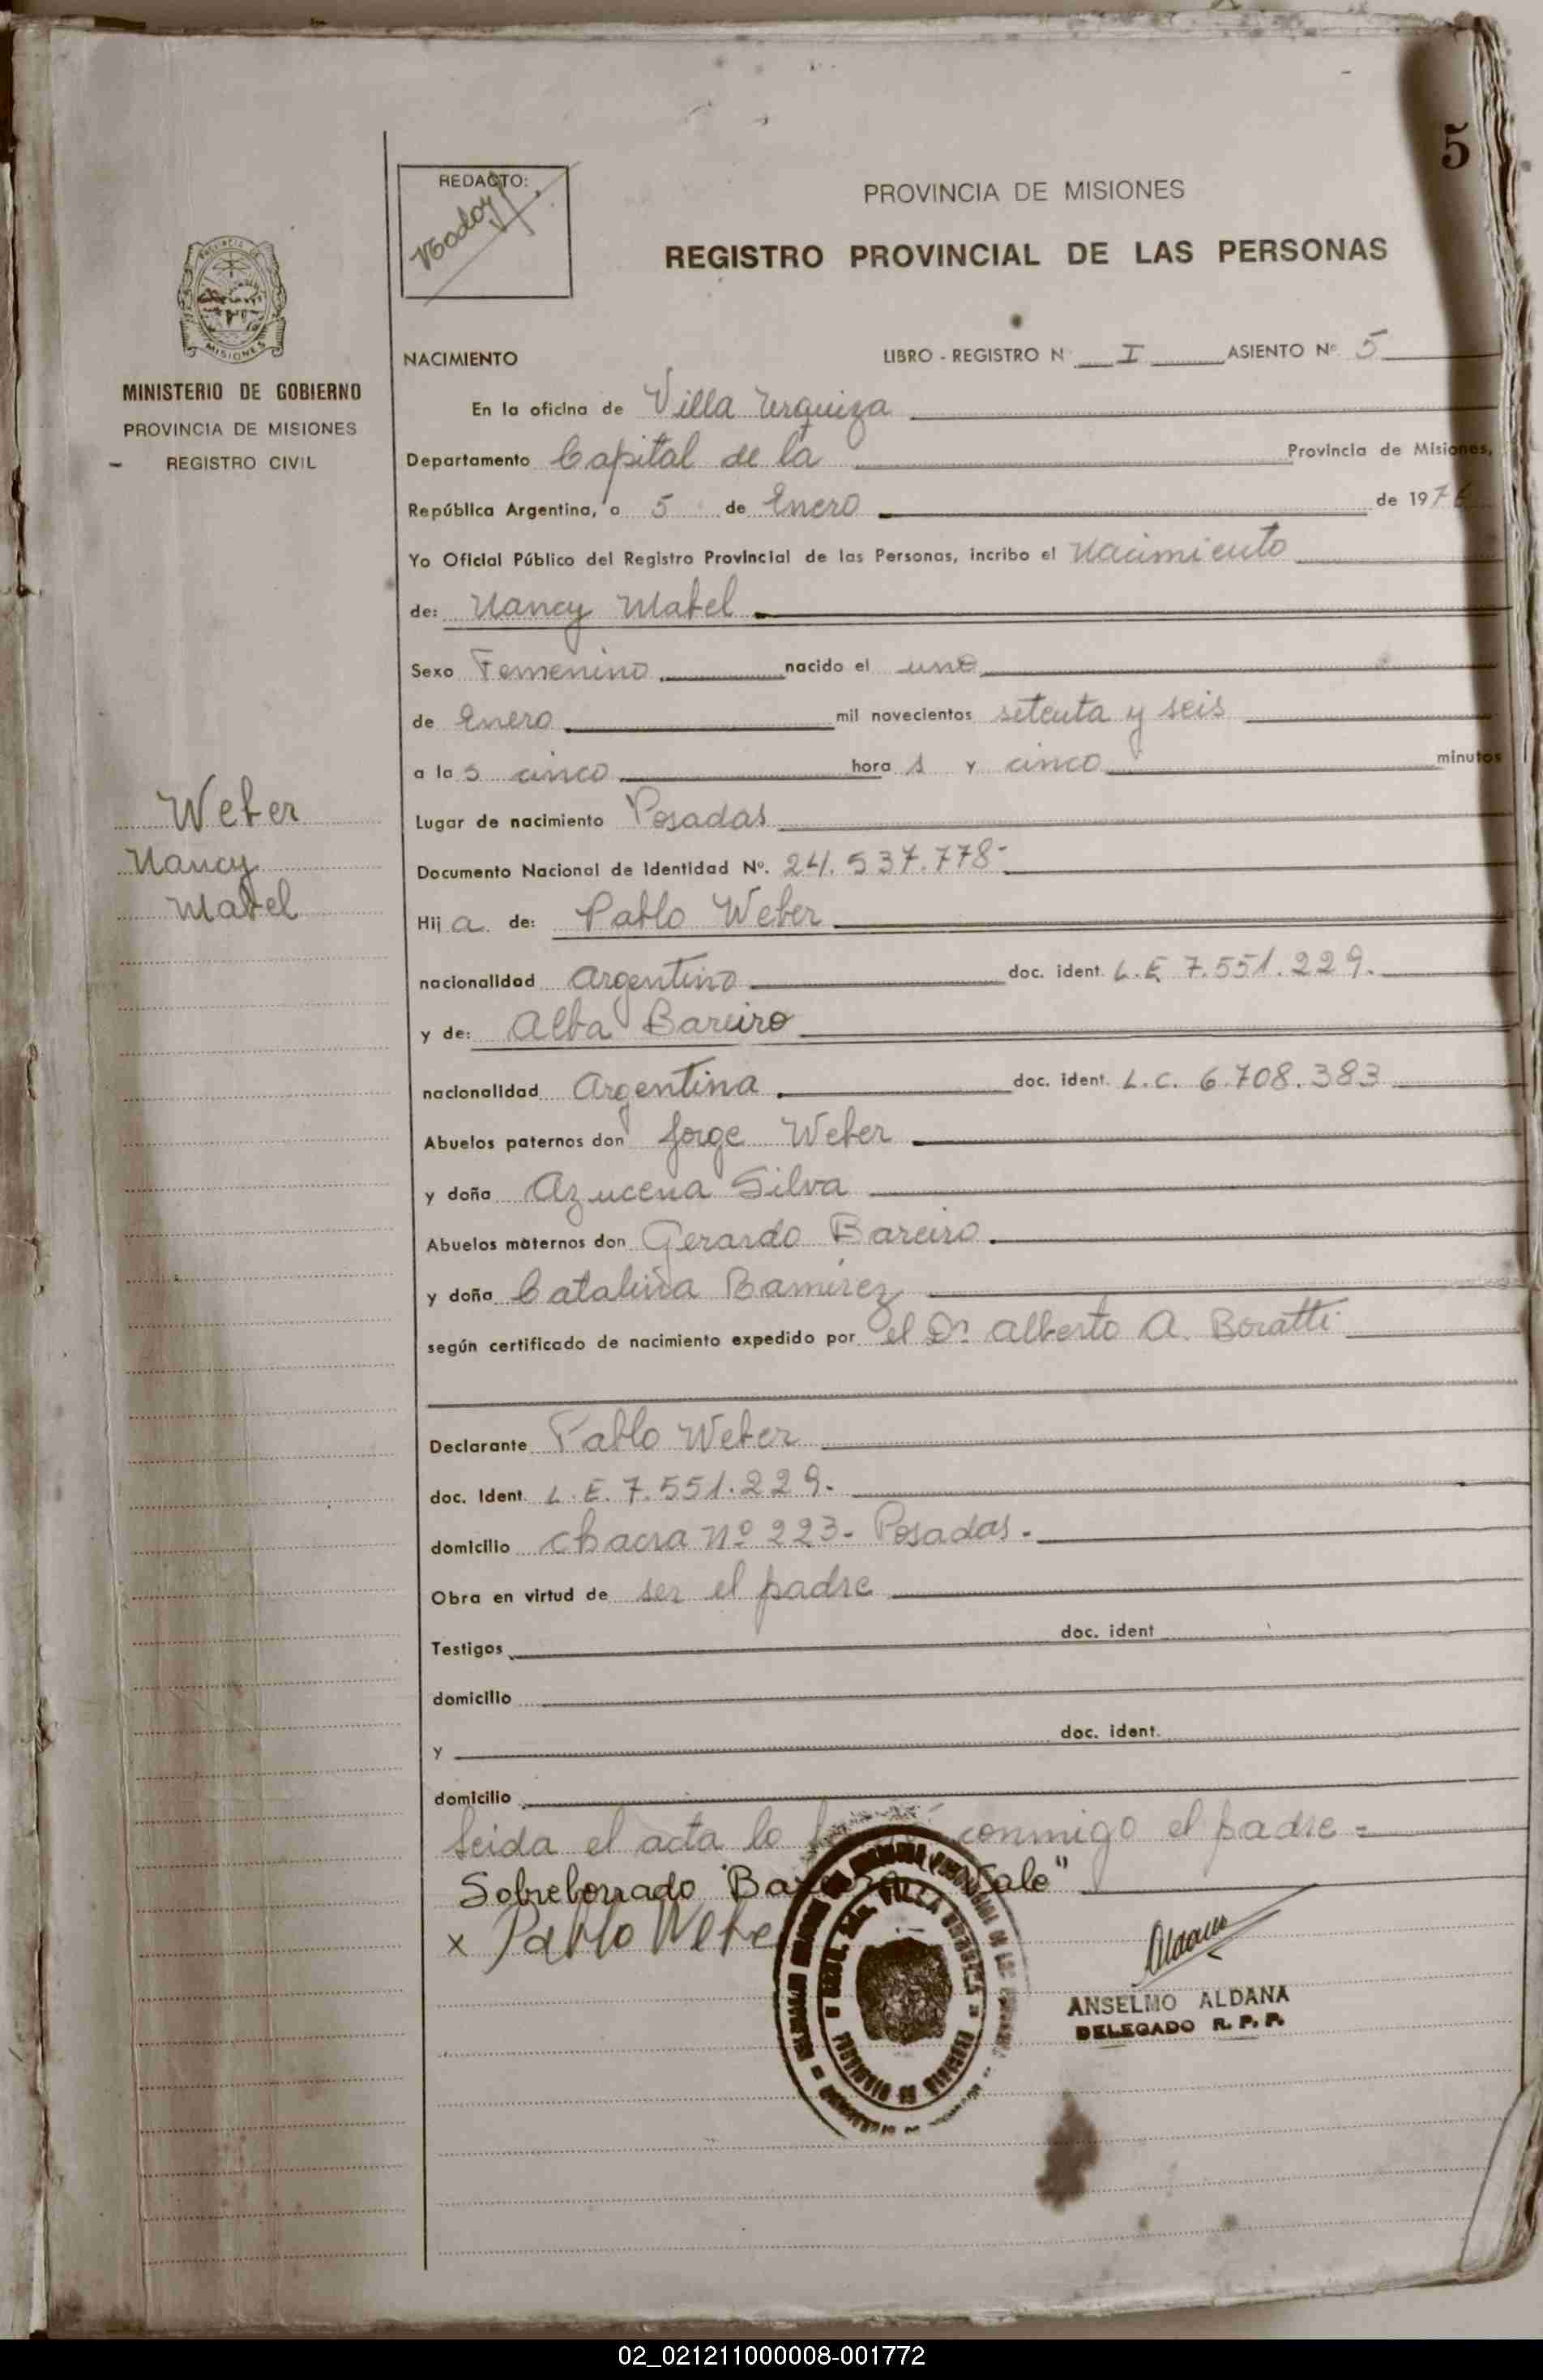 5
REDACTO:
PROVINCIA DE MISIONES
REGISTRO PROVINCIAL DE LAS PERSONAS
MISIONES
MINISTERIO DE GOBIERNO
PROVINCIA DE MISIONES
REGISTRO CIVIL
NACIMIENTO LIBRO - REGISTRO N I ASIENTO Nº 5
En la oficina de Villa Urquiza
Departamento Capital de la Provincia de Misiones,
República Argentina, a 5 de Enero de 1976
Yo Oficial Público del Registro Provincial de las Personas, incribo el Nacimiento
de: Nancy Mabel
Sexo Femenino nacido el uno
de Enero mil novecientos setenta y seis
a la s cinco hora s y cinco minutos
Weber
Nancy
Mabel
Lugar de nacimiento Posadas
Documento Nacional de Identidad Nº. 24.537.778-
Hij a de: Pablo Weber
nacionalidad Argentino doc. ident. L.E 7.551.229.
y de: Alba Bareiro
nacionalidad Argentina doc. ident. L.C. 6.708.383
Abuelos paternos don Jorge Weber
y doña Azucena Silva
Abuelos maternos don Gerardo Bareiro
y doña Catalina Ramirez
según certificado de nacimiento expedido por el Dr. Alberto A. Boratti
Declarante Pablo Weber
doc. Ident. L.E. 7.551.229.
domicilio chacra Nº 223- Posadas.
Obra en virtud de ser el padre
Testigos doc. ident
domicilio
y doc. ident.
domicilio
Leida el acta lo conmigo el padre =
Sobreborrado Vale"
x Pablo Webe
ANSELMO ALDANA
DELEGADO R. P. P.
02_021211000008-001772